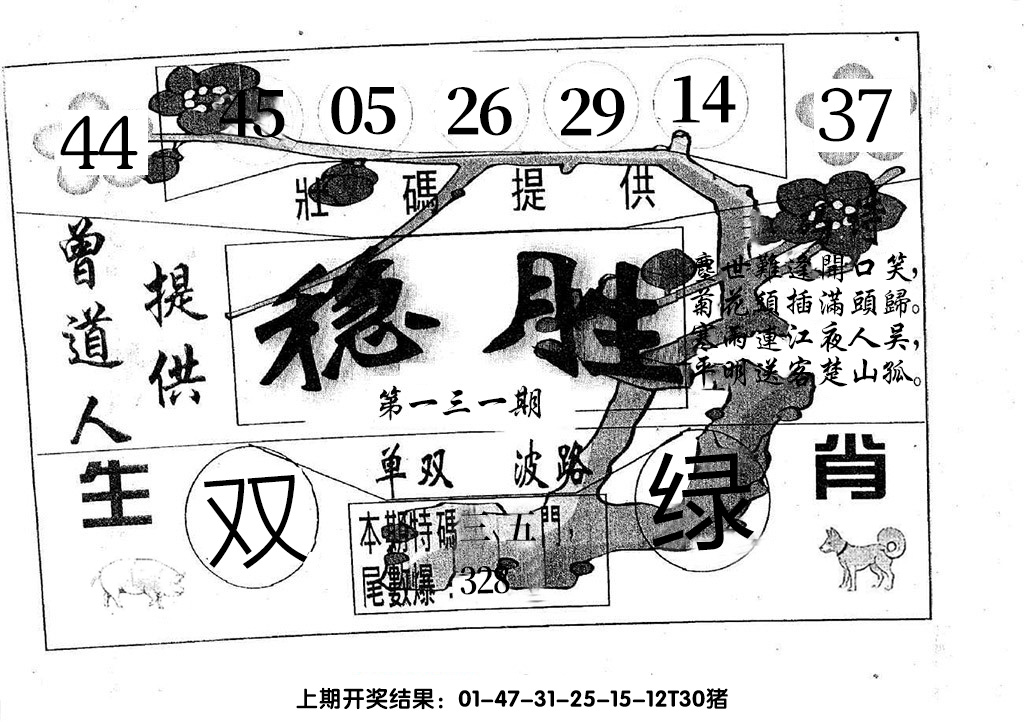 44 45 05 26 29 14 37
壯碼提供
特
曾道人
提供
稳胜
第一三一期
塵世難逢開口笑,
菊花須插滿頭歸。
寒雨連江夜人吴,
平明送客楚山孤。
单双 波路
生肖
双 绿
本期特碼三、五門,
尾數爆:328
上期开奖结果:01-47-31-25-15-12T30猪